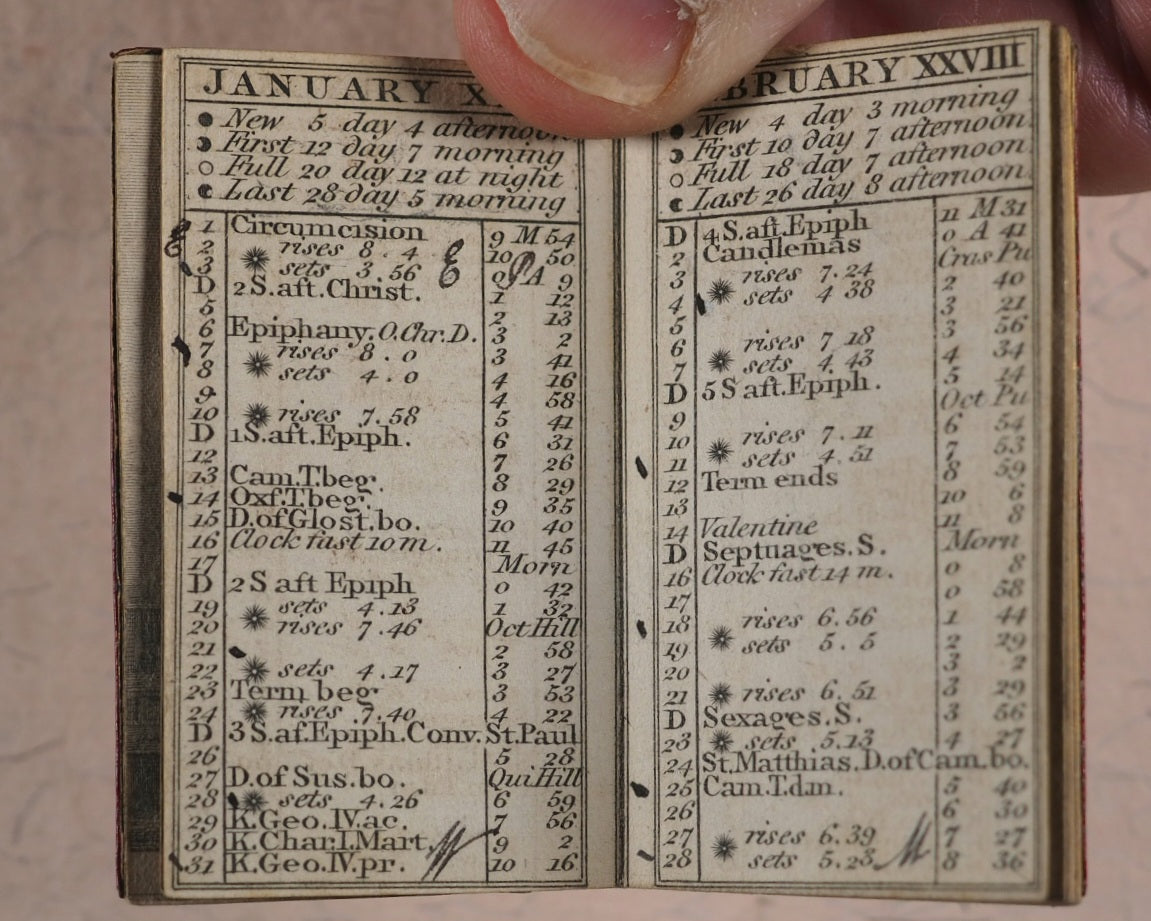 JANUARY
New 5 day 4 afternoon
First 12 day 7 morning
Full 20 day 12 at night
Last 28 day 5 morning
1 Circumcision 9 M 54
2 rises 8 . 4 10 50
3 sets 3.56 0 A 9
D 2 S. aft. Christ. 1 12
5 2 13
6 Epiphany. O. Chr. D. 3 2
7 rises 8 . 0 3 41
8 sets 4 . 0 4 16
9 4 58
10 rises 7.58 5 41
D 1 S. aft. Epiph. 6 31
12 7 26
13 Cam. T. beg. 8 29
14 Oxf. T. beg. 9 35
15 D. of Glost. bo. 10 40
16 Clock fast 10 m. 11 45
17 Morn
D 2 S aft Epiph 0 42
19 sets 4.13 1 32
20 rises 7.46 Oct Hill
21 2 58
22 sets 4.17 3 27
23 Term beg. 3 53
24 rises 7.40 4 22
D 3 S. af. Epiph. Conv. St. Paul
26 5 28
27 D. of Sus. bo. Qui Hill
28 sets 4.26 6 59
29 K. Geo. IV. ac. 7 56
30 K. Char. I. Mart. 9 2
31 K. Geo. IV. pr. 10 16
BRUARY XXVIII
New 4 day 3 morning
First 10 day 7 afternoon
Full 18 day 7 afternoon
Last 26 day 8 afternoon
D 4 S. aft. Epiph 11 M 31
2 Candlemas 0 A 41
3 rises 7.24 Cras Pu
4 sets 4 38 2 40
5 3 21
6 rises 7 18 3 56
7 sets 4.43 4 34
D 5 S aft. Epiph. 5 14
9 Oct Pu
10 rises 7.11 6 54
11 sets 4.51 7 53
12 Term ends 8 59
13 10 6
14 Valentine 11 8
D Septuages. S. Morn
16 Clock fast 14 m. 0 8
17 0 58
18 rises 6.56 1 44
19 sets 5.5 2 29
20 3 2
21 rises 6.51 3 29
D Sexages. S. 3 56
23 sets 5.13 4 27
24 St. Matthias. D. of Cam. bo.
25 Cam. T. d. m. 5 40
26 6 30
27 rises 6.39 7 27
28 sets 5.23 8 36